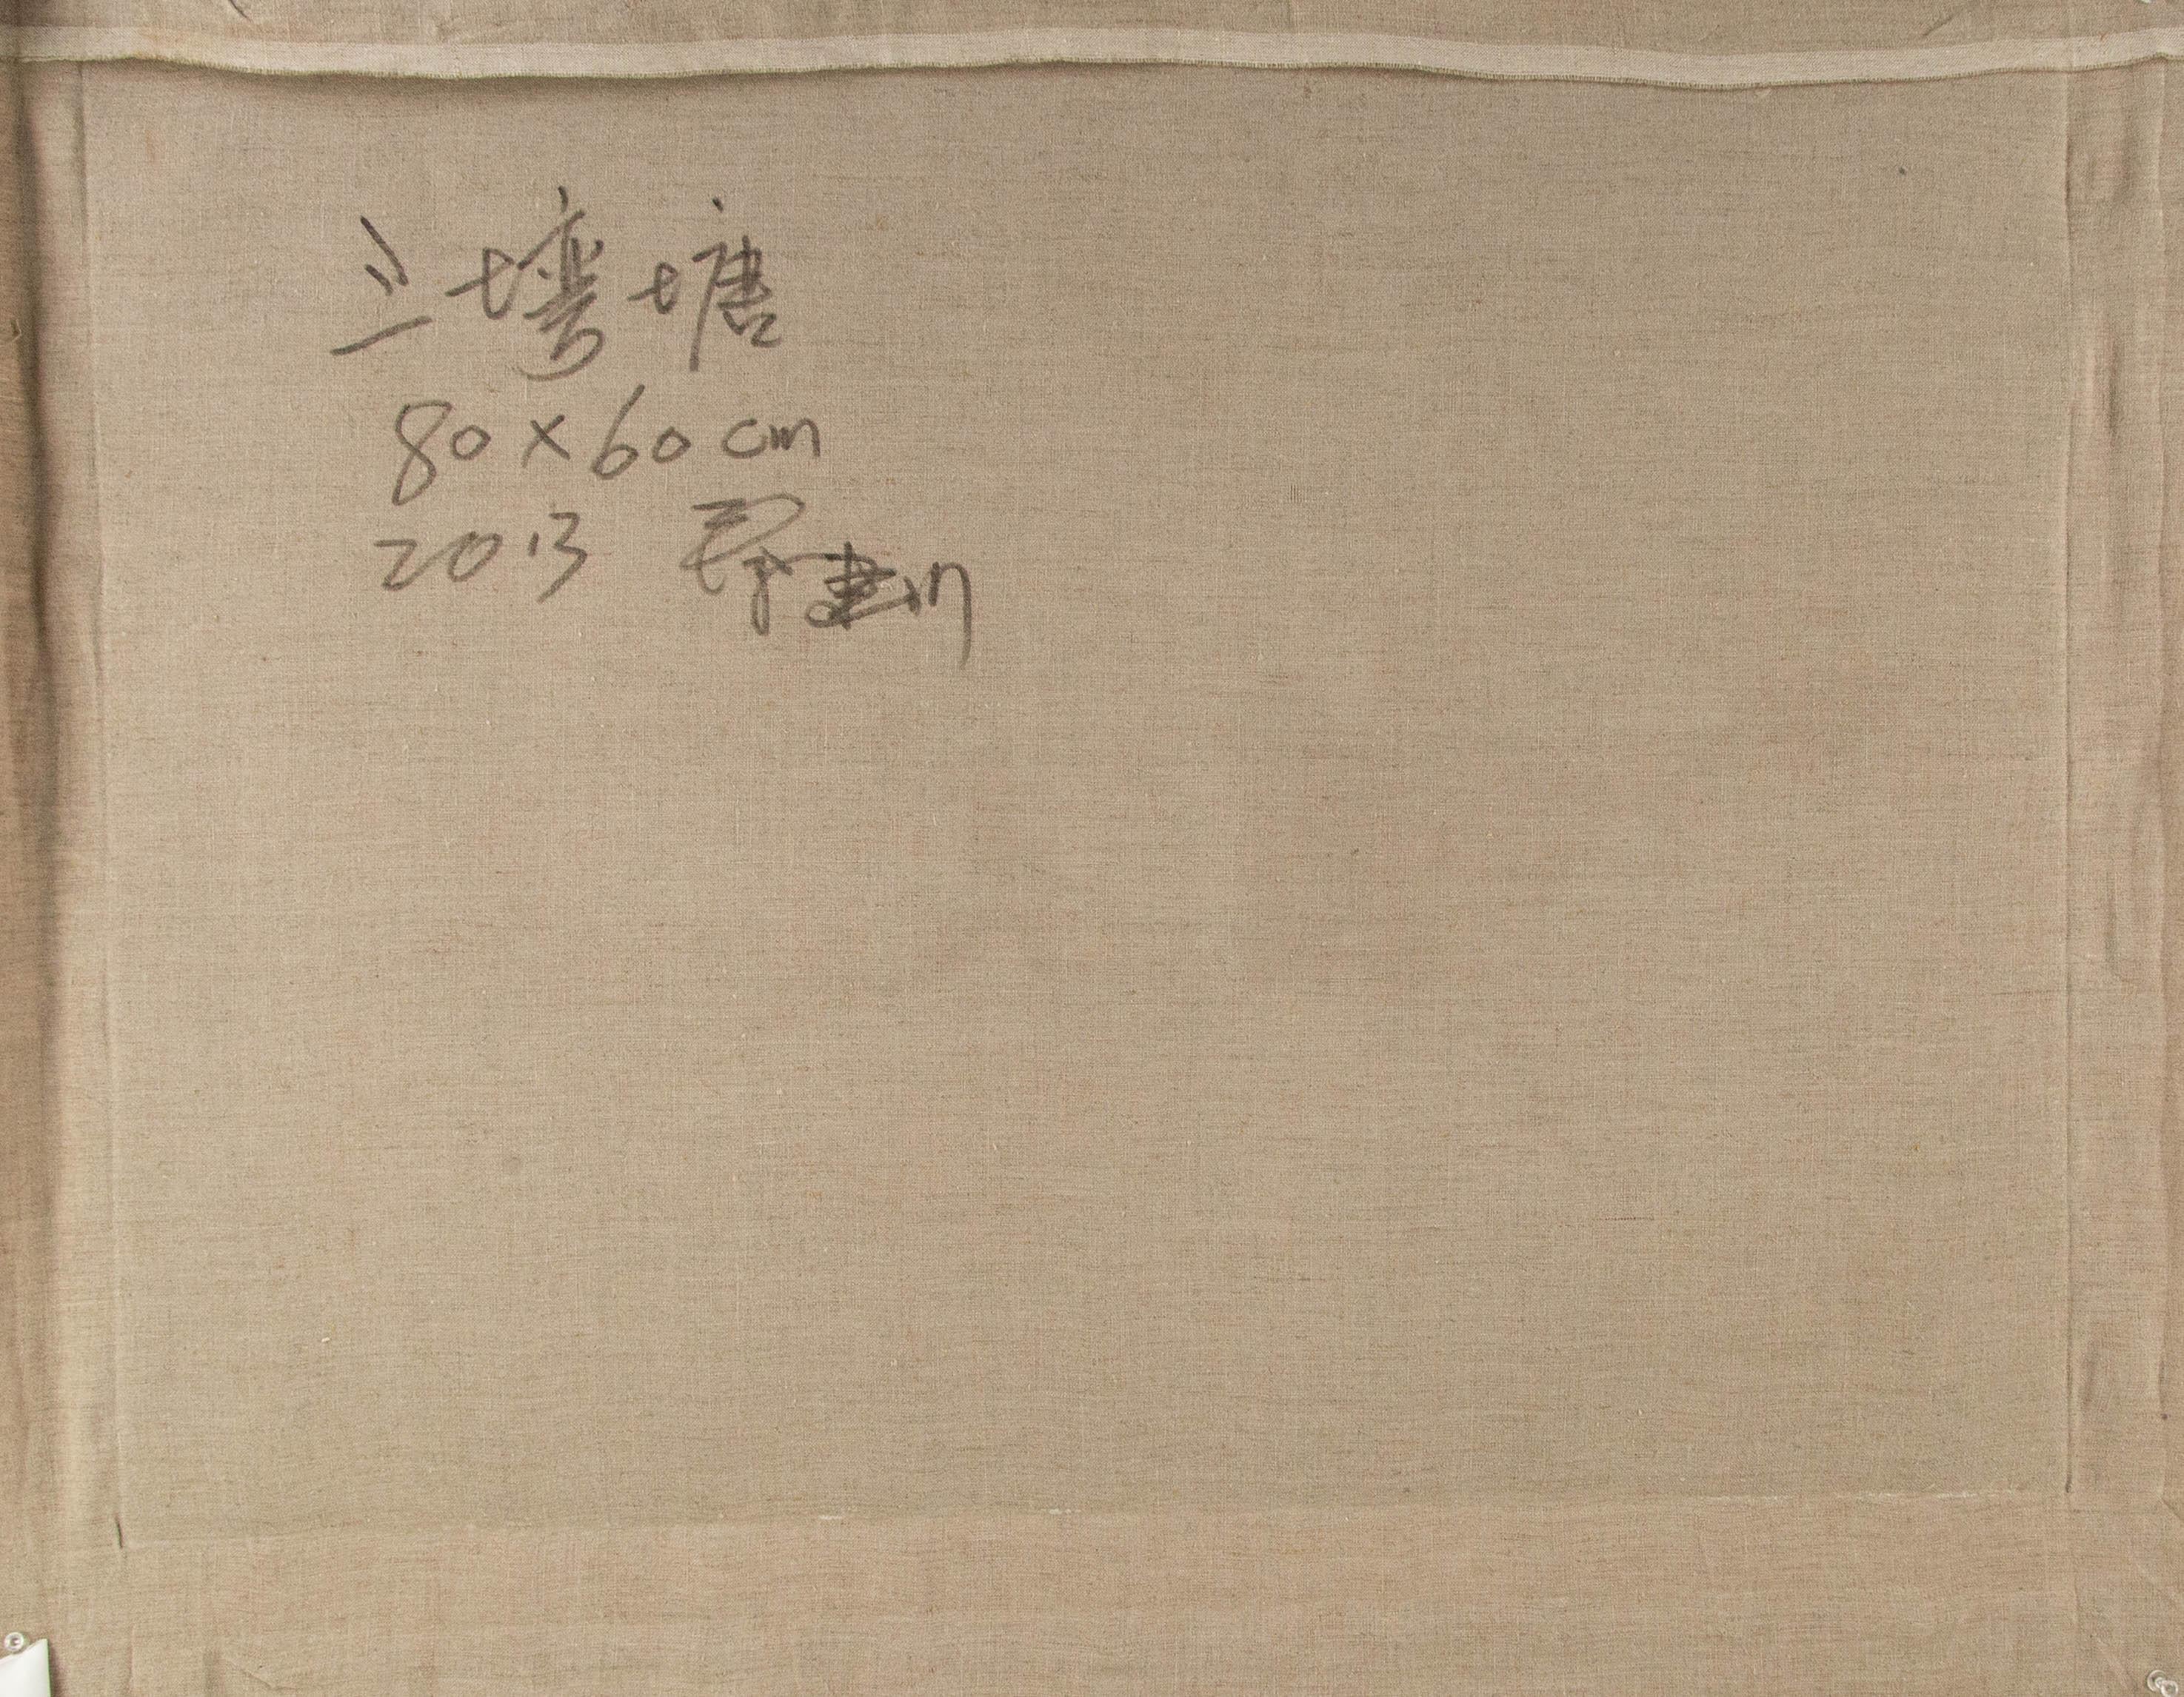 三塆塘
80×60cm
2013